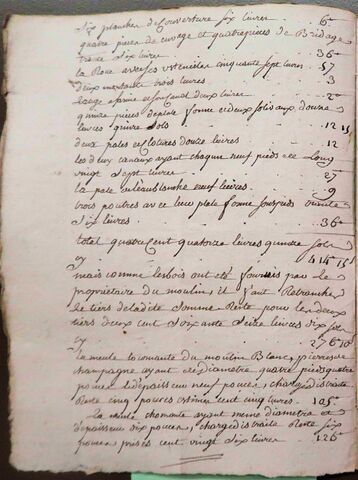 Six planches de Couverture six livres 6#
quatre pieces de cuvage et quatre pieces de Bridage
trente Six livres 36#
la Roue avec ses ustenciles cinquante sept livres 57
deux trois livres 3
deux livres 2#
quinze pieces plate forme et deux solivaux douze
livres quinze sols 12 15
deux pales et clotures douze livres 12
les deux canaux ayant chaqun neuf pieds de Long
vingt Sept livres 27
la pale neuf livres 9
trois poutres avec leur plate forme trente
Six livres 36#
total quatre cent quatorze livres quinze sols
cy 414 15
mais comme les bois ont été fournis par le
propriétaire du moulin, il faut Retrancher
le tiers de ladite Somme Reste pour les deux
tiers deux cent Soixante Seize livres dix sols
cy 276 10
la meule tournante du moulin Blanc, pierre de
champagne ayant de diametre quatre pieds quatre
pouces d'epaisseur neuf pouces, charge distraite
Reste cinq pouces estimée cent cinq livres 105#
la meule ayant meme diametre et
d'epaisseur dix pouces, charge distraite Reste six
pouces prisés cent vingt Six livres 126#